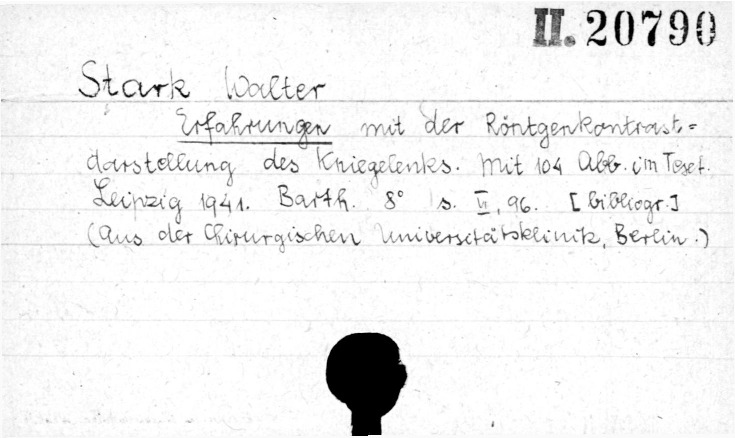 II. 20790
Stark Walter
Erfahrungen mit der Röntgenkontrast=
darstellung des Kniegelenks. Mit 104 Abb. im Text.
Leipzig 1941. Barth. 8° s. VI, 96. [bibliogr.]
(Aus der Chirurgischen Universitätsklinik, Berlin.)